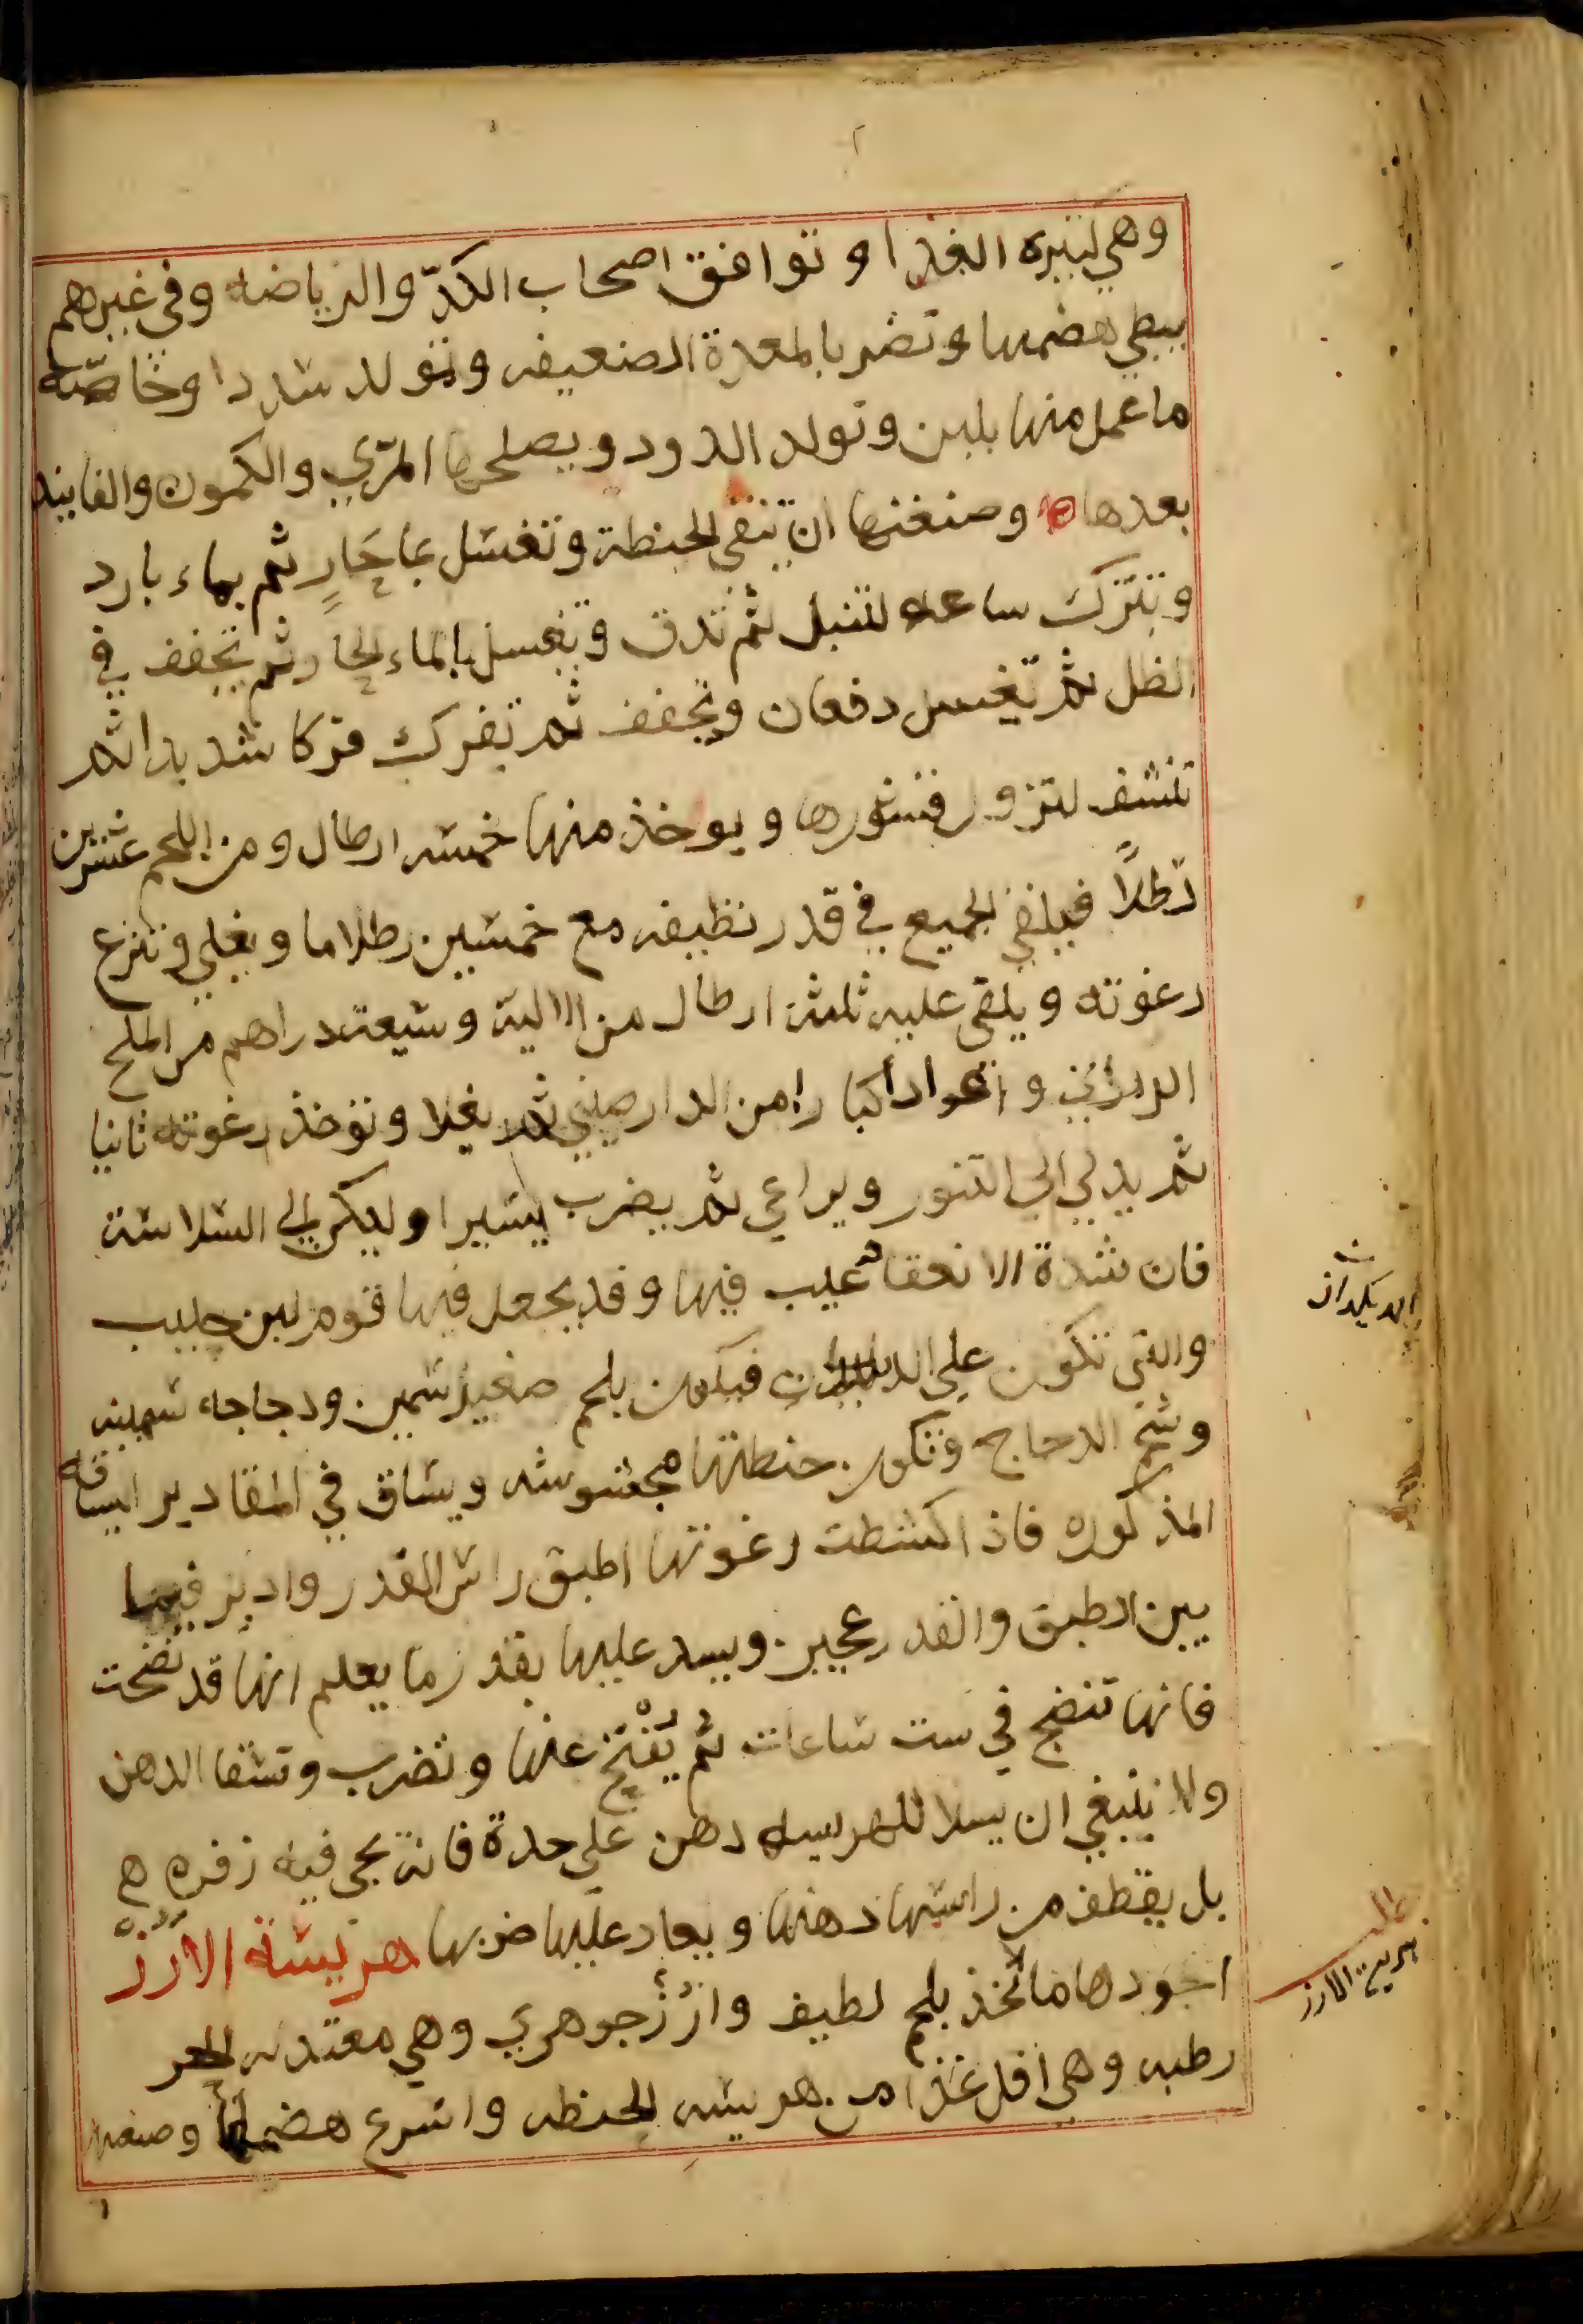 وهي كثيرة الغذا و توافق اصحاب الكدّ والرياضه وفي غيرهم
يبطي هضمها وتضر بالمعدة الضعيفه وتولد سددا وخاصّه
ما عمل منها بلبن وتولد الدود ويصلحها المرّي والكمون والفانيد
بعدها وصنعتها ان تنقى الحنطة وتغسل بما حَارٍ ثم بماء بارد
وتترك ساعه لتبتل ثم تدق وتغسل بالماء الحار ثم تجفف في
الظل ثم تغسل دفعات وتجفف ثم تفرك فركا شديدا ثم
تنشف لتزول قشورها ويوخذ منها خمسه ارطال ومن اللحم عشرين
رطلاً فيلقى الجميع في قدر نظيفه مع خمسين رطلا ما ويغلي وتنزع
رغوته ويلقى عليه ثلثة ارطال من الالية وسبعة دراهم من الملح
الدراني و اعوادا كبارا من الدارصيني ثم يغلا وتوخذ رغوته ثانيا
ثم يدلي الي التنور ويراعي ثم يضرب يسيرا وليكن الي السلاسة
فان شدة الانعقاد عيب فيها وقد يجعل فيها قوم لبن حليب
والتي تكون علي فيكون بلحم صغير سمين ودجاجه سمينه
وشحم الدجاج وتكون حنطتها مجشوشه ويساق في المقادير السياقه
المذكوره فاذا كشطت رغوتها اطبق راس القدر وادير فيما
بين الطبق والقدر عجين ويسد عليها بقدر ما يعلم انها قد نضجت
فانها تنضج في ست ساعات ثم يُفْتَح عنها وتضرب وتسقا الدهن
ولا ينبغي ان يسلا للهريسه دهن على حدة فانه يجي فيه زفره
بل يقطف من راسها دهنها ويعاد عليها ضربها هريسة الأرُزّ
اجودها ما اتخذ بلحم لطيف وارُز جوهري وهي معتدله الحر
رطبه وهي اقل غذا من هريسه الحنطه واسرع هضما وصنعتها
الديكدان
هريسة الارز